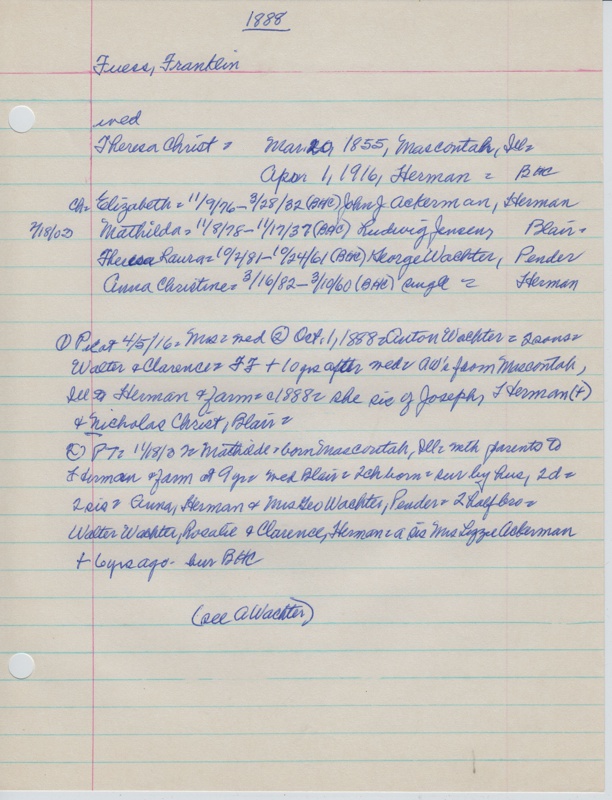 1888
Fuess, Franklin
wed
Theresa Christ = Mar 20, 1855, Mascoutah, Ill=
Apr 1, 1916, Herman = BHC
Ch= Elizabeth = 11/9/76 - 3/28/32 (BHC) John J Ackerman, Herman
Mathilda = 11/8/78 - 11/17/37 (BHC) Ludwig Jensen, Blair =
Theresa Laura = 10/2/81 - 10/24/61 (BHC) George Wachter, Pender
Anna Christine = 3/16/82 - 3/10/60 (BHC) single = Herman
① Pilot 4/5/16 = Mrs = wed ② Oct. 1, 1888 = Anton Wachter = 2 sons =
Walter & Clarence = FF + 10 yrs after wed = AW'e from Mascoutah,
Ill to Herman & farm = c1888 = she sis of Joseph, Herman (+)
& Nicholas Christ, Blair =
② PT = 11/18/37 = Mathilde = born Mascoutah, Ill = with parents to
Herman & farm at 9 yr = wed Blair = 2 ch born = sur by hus, 2 d =
2 sis = Anna, Herman & Mrs Geo Wachter, Pender = 2 half bro =
Walter Wachter, Rosalie & Clarence, Herman = a sis Mrs Lizzie Ackerman
+ 6 yrs ago - bur BHC
(see A Wachter)